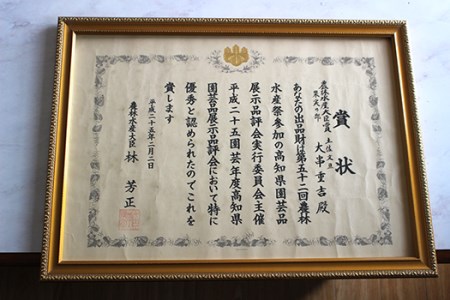 賞状
農林水産大臣賞
果実の部
土佐文旦
大串重吉殿
あなたの出品財は第五十二回農林
水産祭参加の高知県園芸品
展示品評会実行委員会主催
平成二十五園芸年度高知県
園芸品展示品評会において特に
優秀と認められたのでこれを
賞します
平成二十五年二月二日
農林水産大臣 林芳正